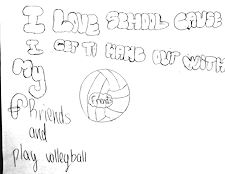 I LOVE SCHOOL CAUSE
I GET TO HANG OUT WITH
My
Friends
friends
and
play volleyball